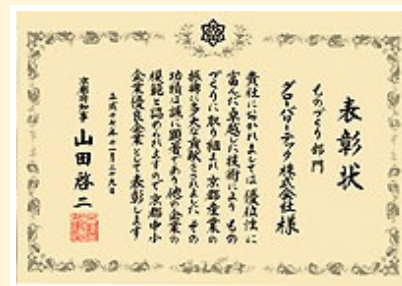 表彰状
ものづくり部門
グローバーテック株式会社様
貴社におかれましては優位性に
富んだ卓越した技術により もの
づくりに取り組まれ 京都産業の
振興に多大な貢献をされました その
功績は誠に顕著であり 他の企業の
模範と認められますので 京都中小
企業優良企業として表彰します
平成十七年十一月二十九日
京都府知事 山田啓二